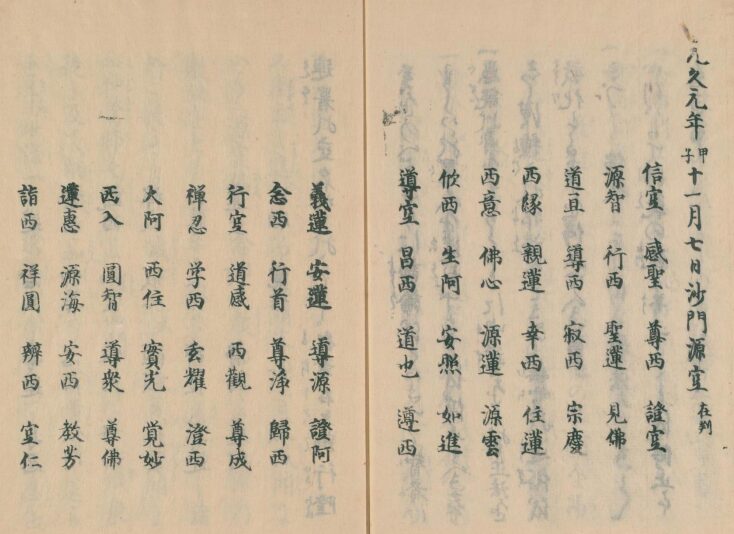 元久元年甲子十一月七日沙門源空在判
信空 感聖 尊西 證空
源智 行西 聖蓮 見佛
道亘 導西 寂西 宗慶
西縁 親蓮 幸西 住蓮
西意 佛心 源蓮 源雲
欣西 生阿 安照 如進
導空 昌西 道也 遵西
義蓮 安蓮 導源 證阿
念西 行首 尊淨 歸西
行空 道感 西觀 尊成
禅忍 学西 玄耀 澄西
大阿 西住 實光 覚妙
西入 圓智 導衆 尊佛
蓮惠 源海 安西 教芳
詣西 祥圓 辨西 空仁